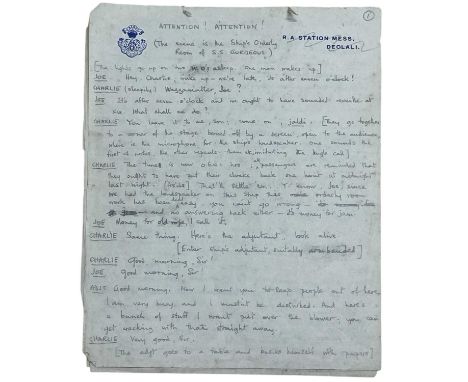 ATTENTION! ATTENTION!
1
R.A. STATION MESS,
DEOLALI.
(The scene is the Ship's Orderly
Room of S.S. GORGEOUS)
[The lights go up on two asleep. One man wakes up]
JOE Hey, Charlie, wake up - we're late, its after seven o'clock!
CHARLIE (sleepily) Wassamatter Joe?
JOE It's after seven o'clock and we ought to have sounded reveille at
six. What shall we do?
CHARLIE You leave it to me, son; come on, jaldi. [They go together
to a corner of the stage boxed off by a screen, open to the audience
where is the microphone for the ship's loudspeaker. One sounds the
first notes, the other repeats them simulating the bugle call]
CHARLIE The time is now 0600 hrs, all passengers are reminded that
they ought to have put their clocks back one hour at midnight
last night. [Aside] That'll settle em. Y'know Joe since
we had the loudspeaker on this ship has orderly room
work has been easy you can't go wrong -
and no answering back either - its money for jam
JOE Money for old rope, I call it.
CHARLIE Same thing. Here's the adjutant, look alive
[Enter ship's adjutant, suitably]
CHARLIE Good morning, Sir!
JOE Good morning, Sir!
ADJT Good morning. Now I want you to keep people out of here,
I am very busy and I mustn't be disturbed. And here's
a bunch of stuff I want put over the blower, you can
get cracking with that straight away.
CHARLIE Very good, Sir.
[The adjt goes to a table and busies himself with papers]